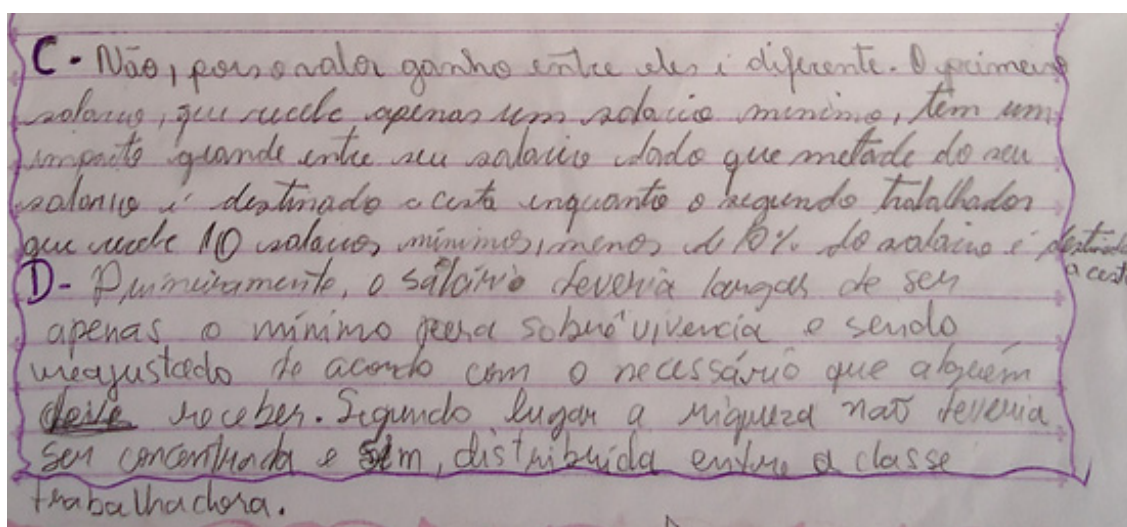 C - Não, pois o valor ganho entre eles é diferente. O primeiro
salario, que recebe apenas um salacio minimo, tem um
impacto grande entre seu salacio dado que metade do seu
salario é destinado a cesta enquanto o segundo trabalhador
que recebe 10 salarios minimos, menos de 10% do salario é destinado
a cesta
D - Primeiramente, o salário deveria largar de ser
apenas o mínimo para sobrevivencia e sendo
reajustado de acordo com o necessário que alguém
receber. Segundo lugar a riqueza não deveria
ser concentrada e sim, distribuida entre a classe
trabalhadora.